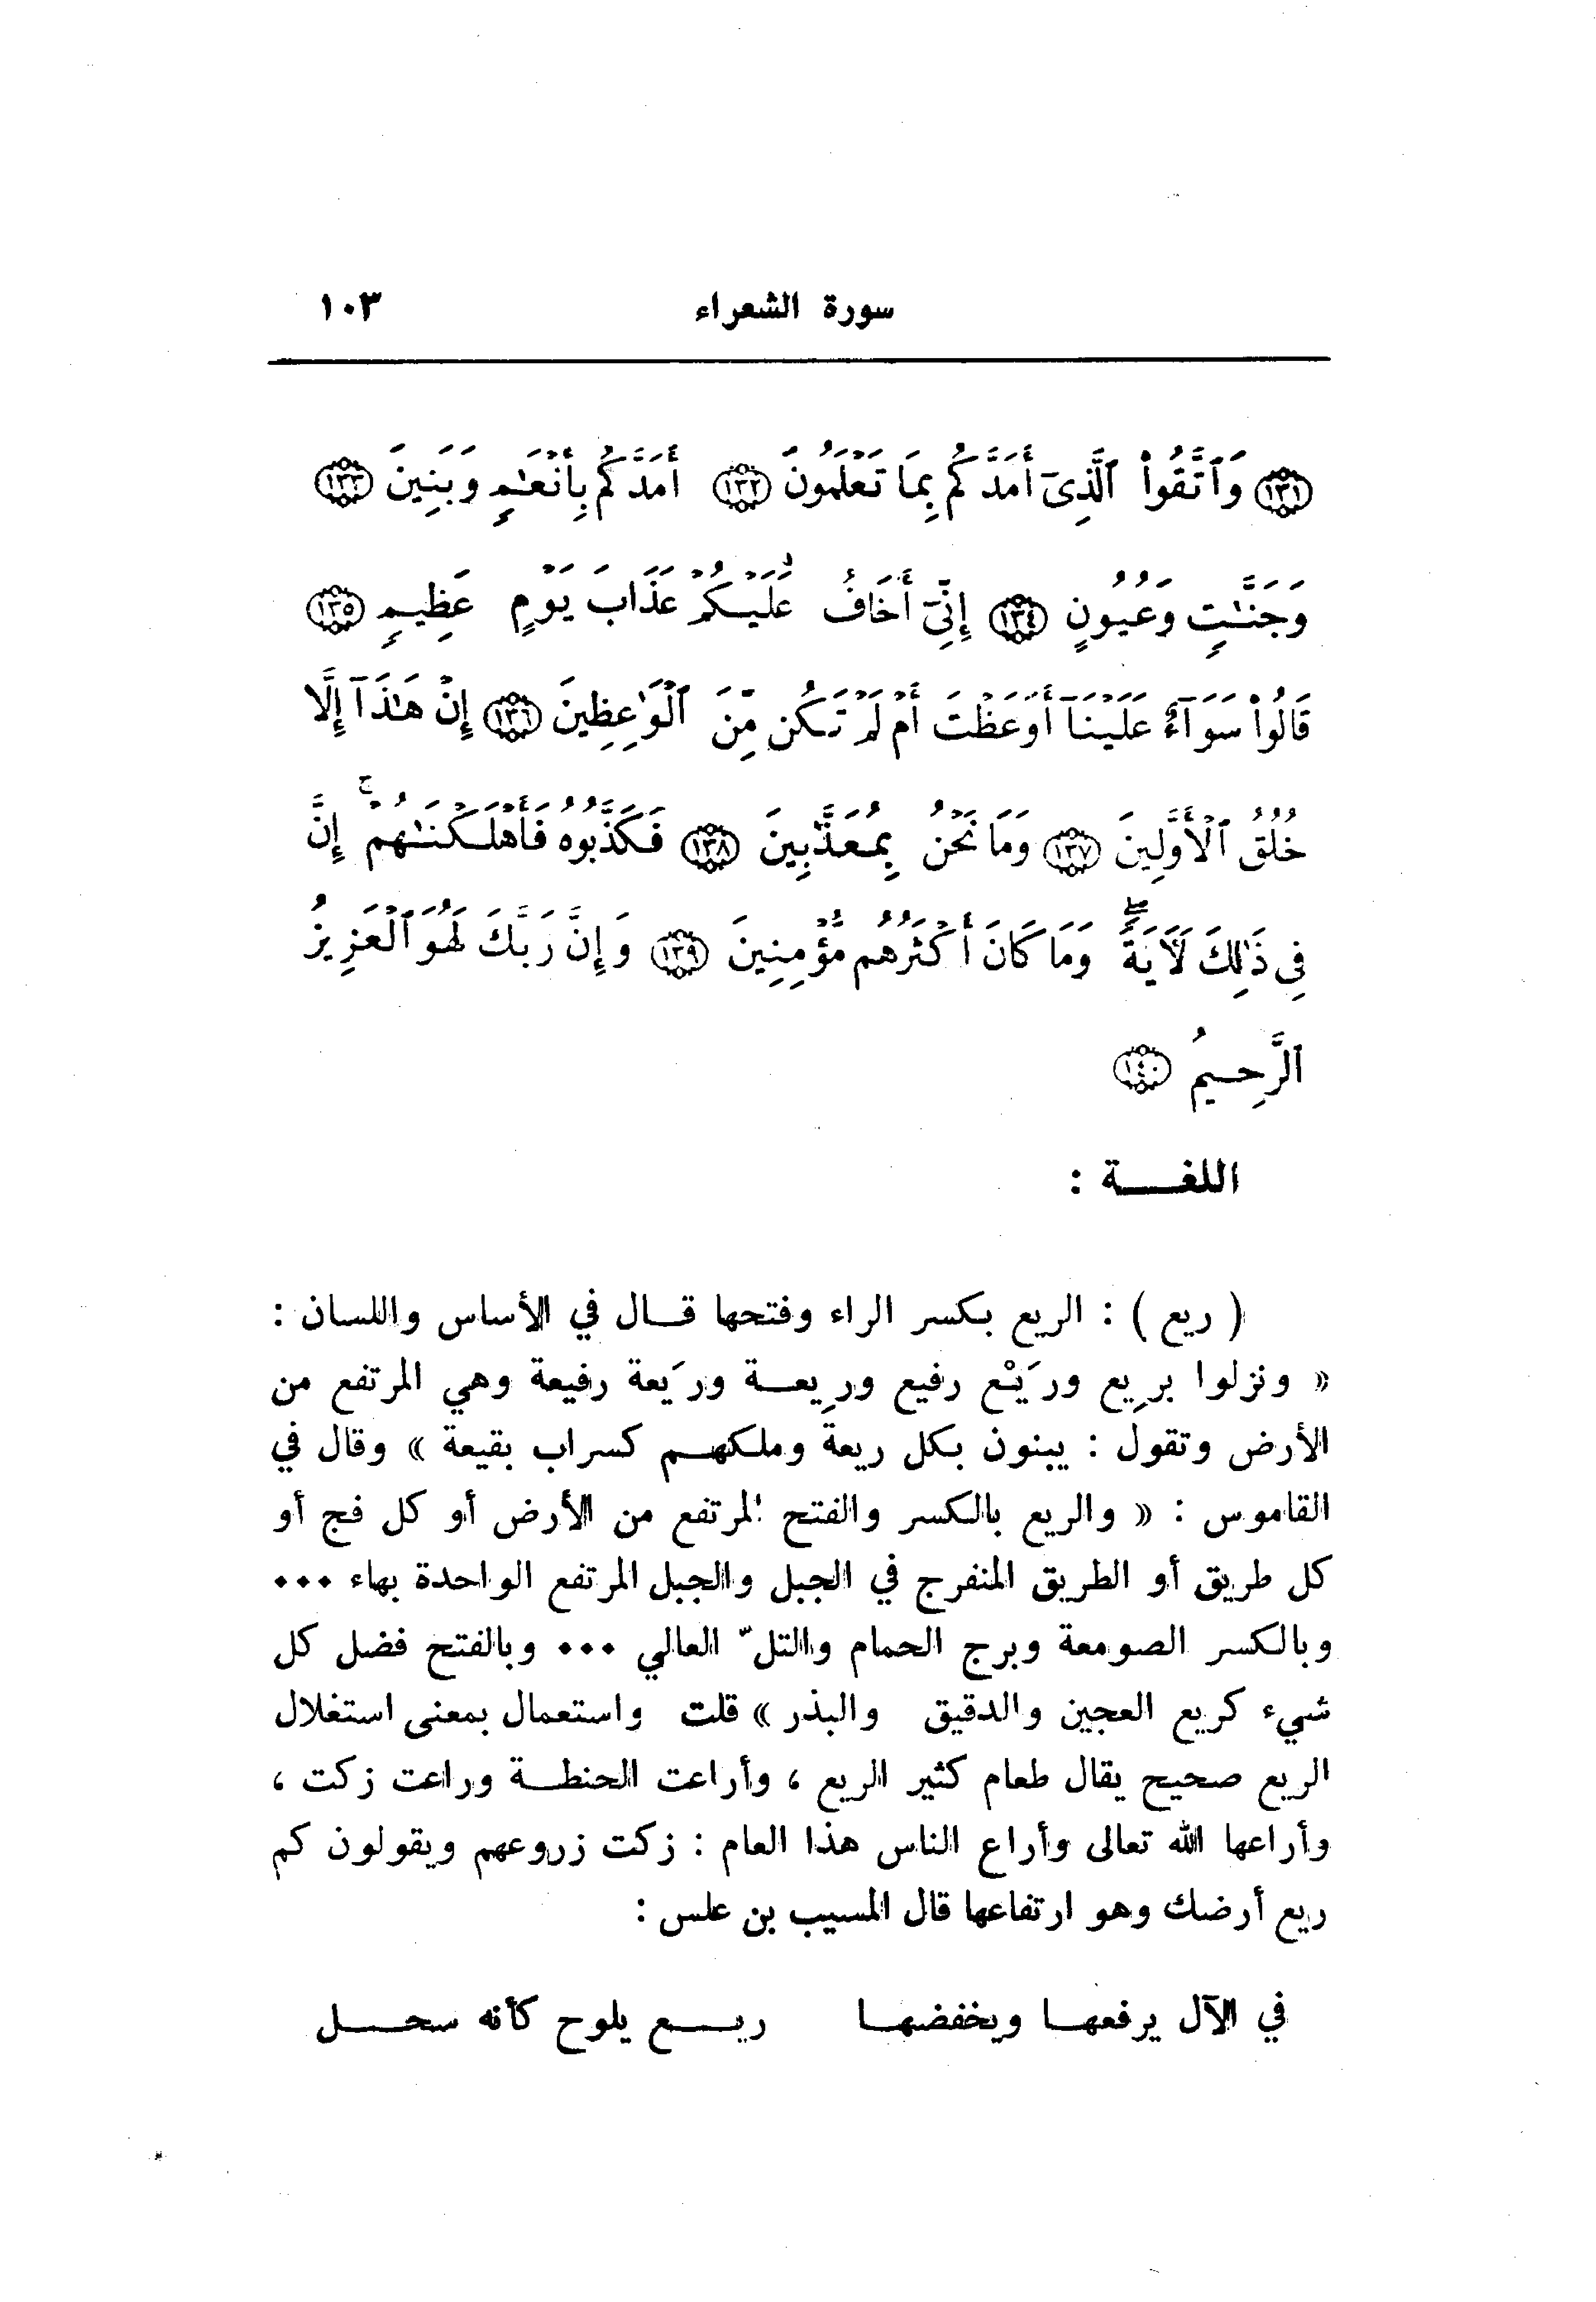 سورة الشعراء ١٠٣
﴿١٣١﴾ وَٱتَّقُوا۟ ٱلَّذِىٓ أَمَدَّكُم بِمَا تَعْلَمُونَ ﴿١٣٢﴾ أَمَدَّكُم بِأَنْعَـٰمٍ وَبَنِينَ ﴿١٣٣﴾
وَجَنَّـٰتٍ وَعُيُونٍ ﴿١٣٤﴾ إِنِّىٓ أَخَافُ عَلَيْكُمْ عَذَابَ يَوْمٍ عَظِيمٍ ﴿١٣٥﴾
قَالُوا۟ سَوَآءٌ عَلَيْنَآ أَوَعَظْتَ أَمْ لَمْ تَكُن مِّنَ ٱلْوَٰعِظِينَ ﴿١٣٦﴾ إِنْ هَـٰذَآ إِلَّا
خُلُقُ ٱلْأَوَّلِينَ ﴿١٣٧﴾ وَمَا نَحْنُ بِمُعَذَّبِينَ ﴿١٣٨﴾ فَكَذَّبُوهُ فَأَهْلَكْنَـٰهُمْ ۚ إِنَّ
فِى ذَٰلِكَ لَـَٔايَةً ۖ وَمَا كَانَ أَكْثَرُهُم مُّؤْمِنِينَ ﴿١٣٩﴾ وَإِنَّ رَبَّكَ لَهُوَ ٱلْعَزِيزُ
ٱلرَّحِيمُ ﴿١٤٠﴾
اللغـــة :
( ريع ) : الريع بكسر الراء وفتحها قـال في الأساس واللسان :
« ونزلوا برِيع ورَيْع رفيع ورِيعـة ورَيعة رفيعة وهي المرتفع من
الأرض وتقول : يبنون بكل ريعة وملكهم كسراب بقيعة » وقال في
القاموس : « والريع بالكسر والفتح المرتفع من الأرض أو كل فج أو
كل طريق أو الطريق المنفرج في الجبل والجبل المرتفع الواحدة بهاء ...
وبالكسر الصومعة وبرج الحمام والتلّ العالي ... وبالفتح فضل كل
شيء كريع العجين والدقيق والبذر » قلت واستعمال بمعنى استغلال
الريع صحيح يقال طعام كثير الريع ، وأراعت الحنطـة وراعت زكت ،
وأراعها الله تعالى وأراع الناس هذا العام : زكت زروعهم ويقولون كم
ريع أرضك وهو ارتفاعها قال المسيب بن علس :
في الآل يرفعهـا ويخفضهـا ريـــع يلوح كأنه سحـــل